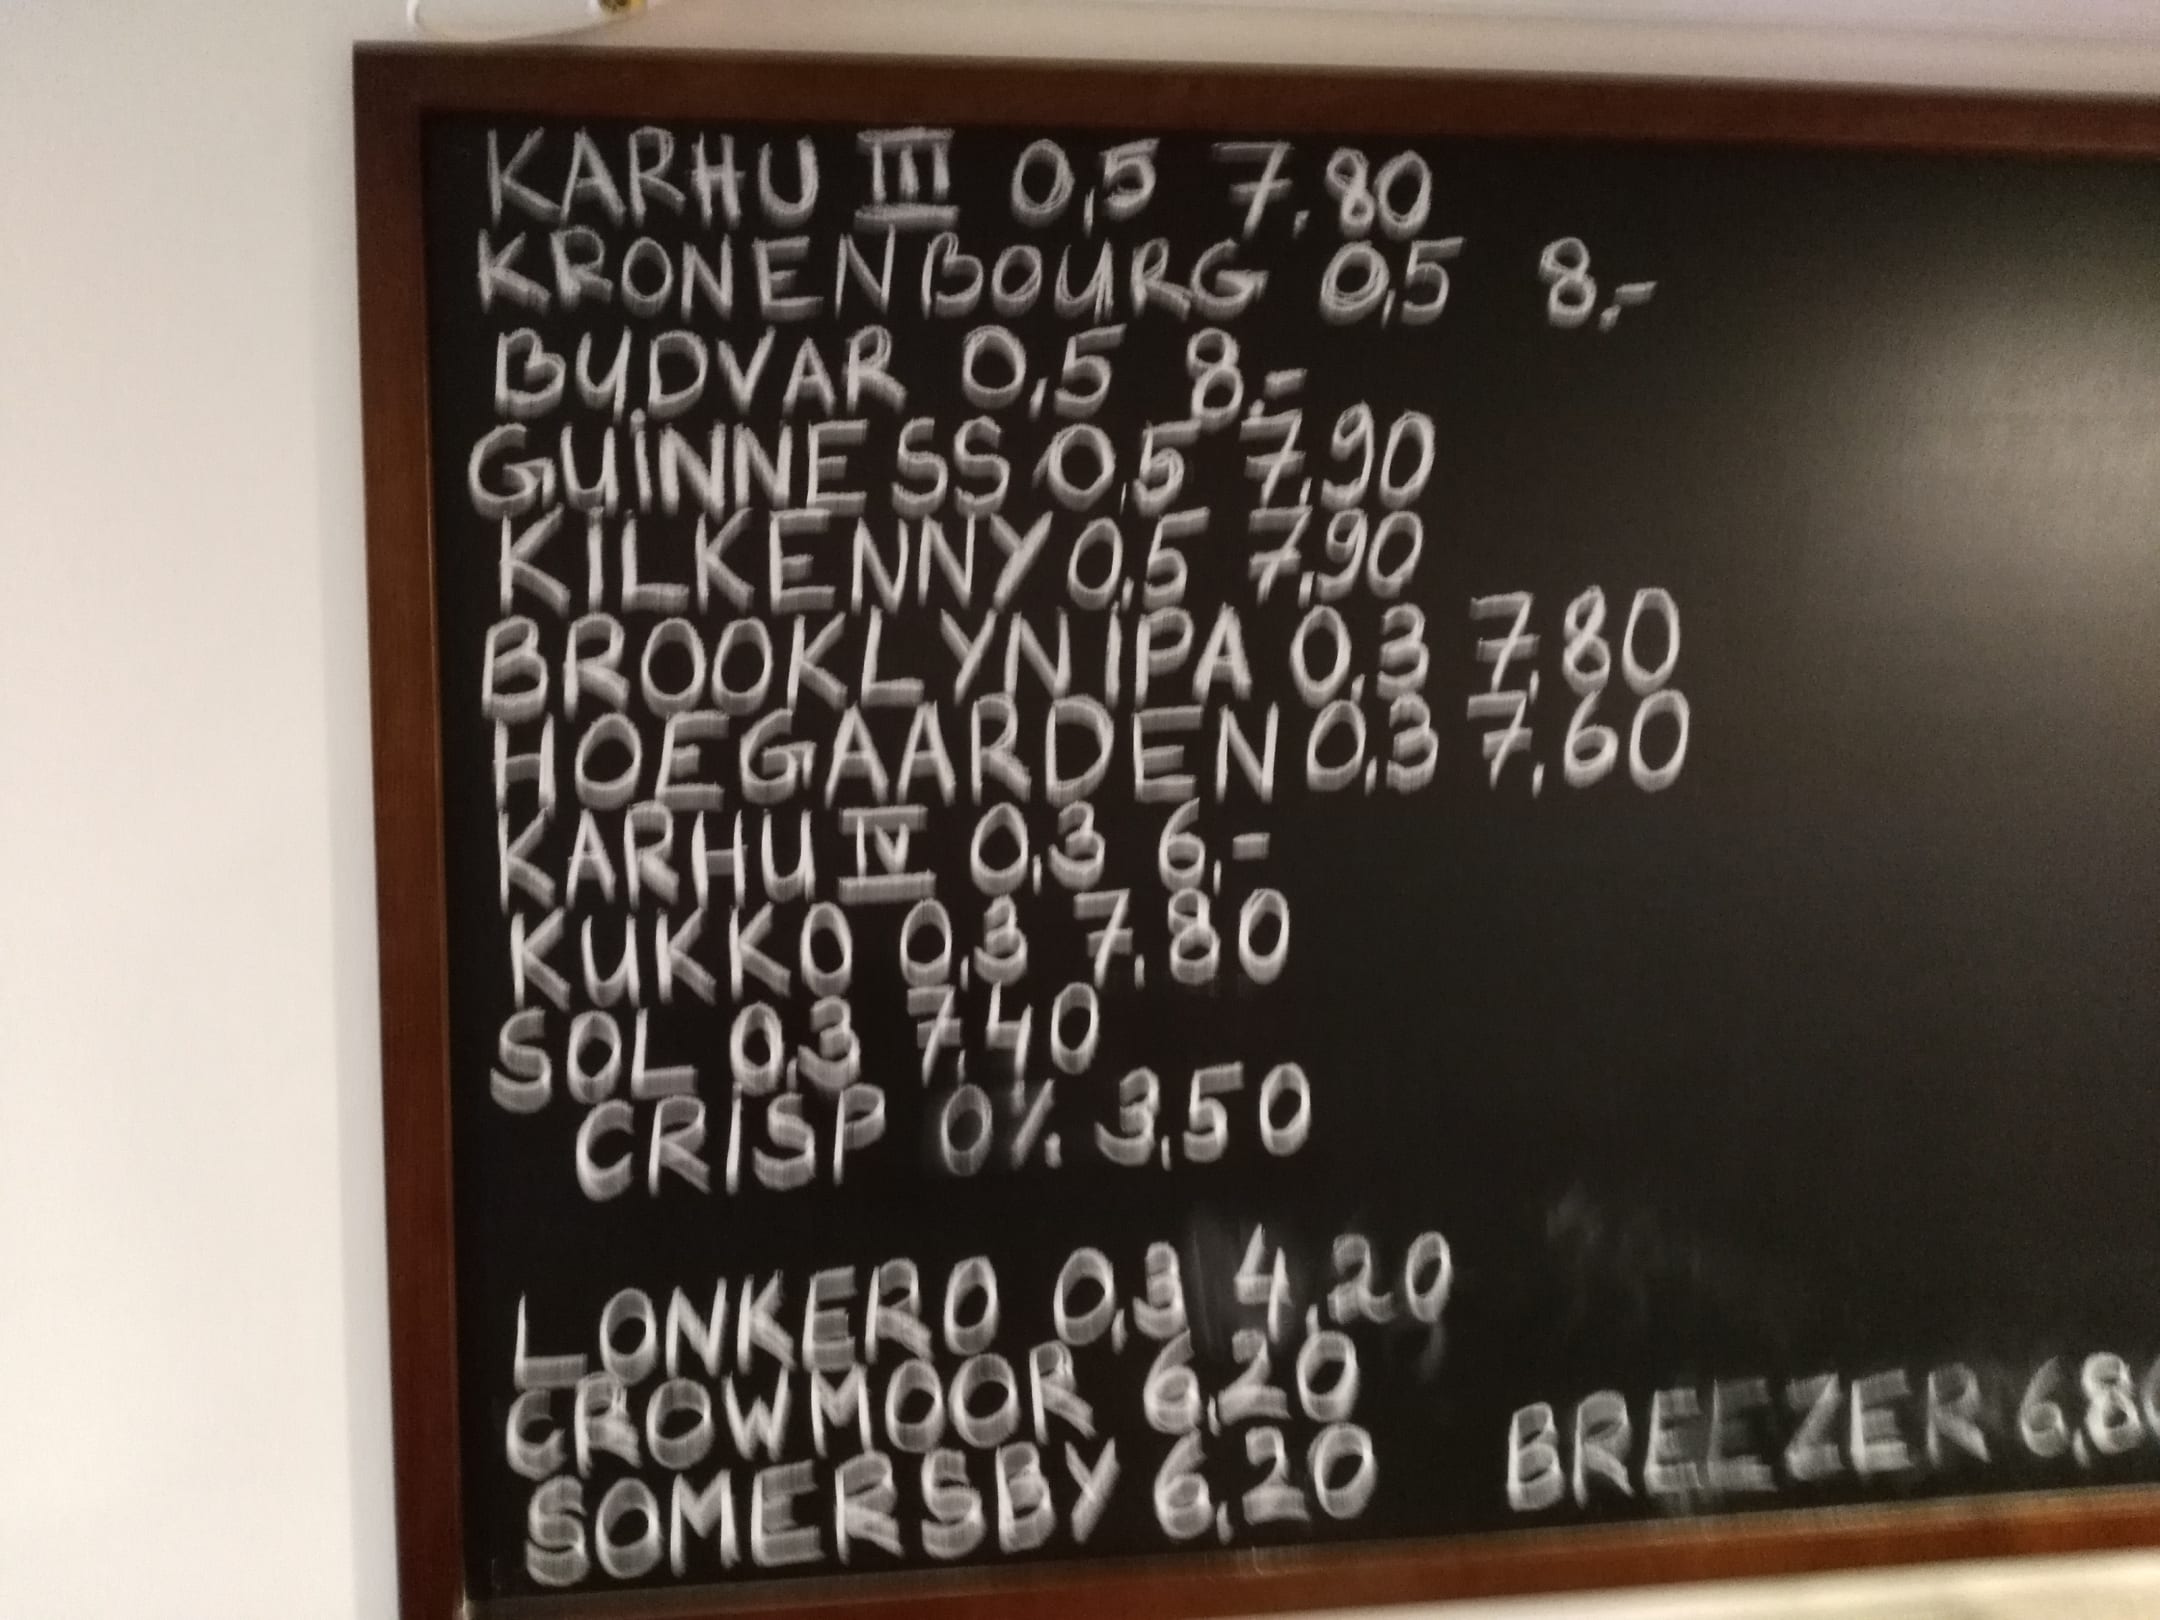 KARHU III 0,5 7,80
KRONENBOURG 0,5 8,-
BUDVAR 0,5 8,-
GUINNESS 0,5 7,90
KILKENNY 0,5 7,90
BROOKLYN IPA 0,3 7,80
HOEGAARDEN 0,3 7,60
KARHU IV 0,3 6,-
KUKKO 0,3 7,80
SOL 0,3 7,40
CRISP 0% 3,50
LONKERO 0,3 4,20
CROWMOOR 6,20
SOMERSBY 6,20
BREEZER 6,80